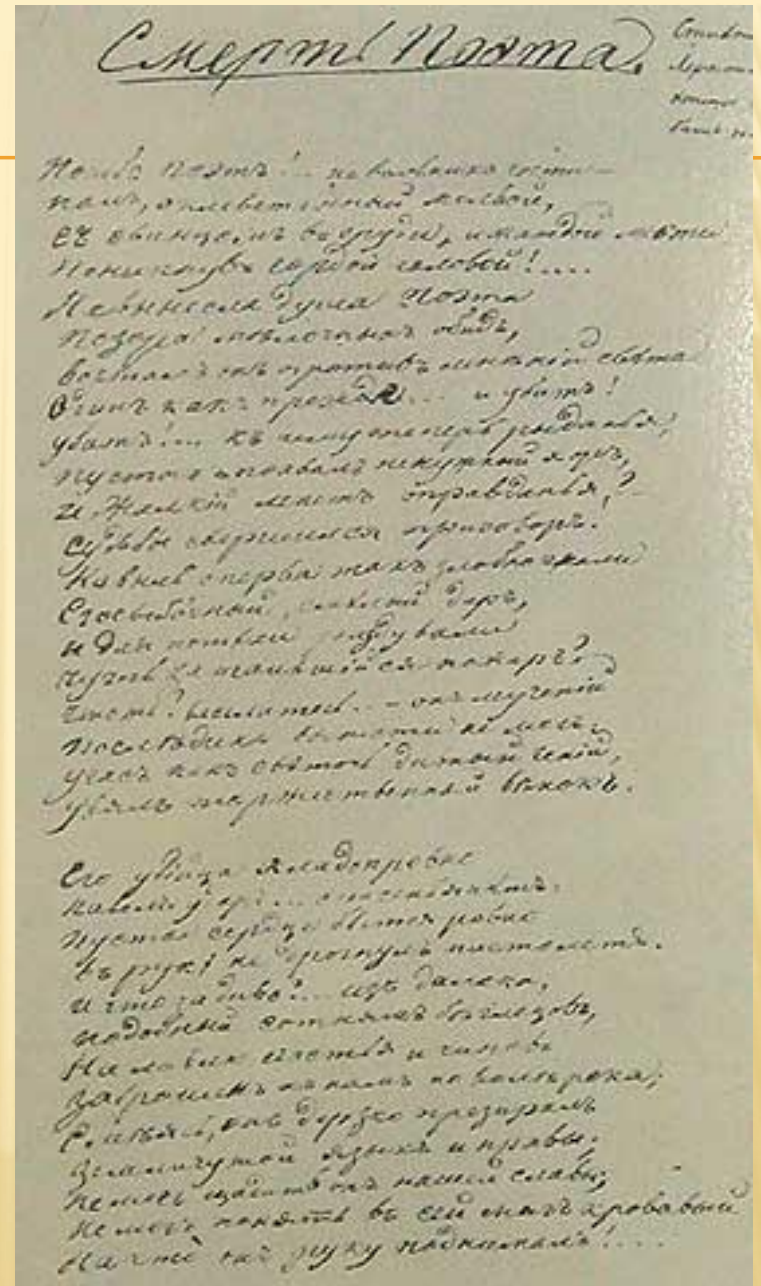 Смерть Поэта.
Погибъ Поэтъ!.. невольникъ чести
палъ, оклеветанный молвой,
съ свинцомъ въ груди, и жаждой мести
Поникнувъ гордой головой!....
Не вынесла душа Поэта
Позора мелочныхъ обидъ,
возсталъ онъ противъ мнѣній свѣта
Одинъ какъ прежде... и убитъ!
убитъ!... къ чему теперь рыданья,
пустыхъ похвалъ ненужный хоръ,
и жалкій лепетъ оправданья?
судьбы свершился приговоръ!
Не вы ль сперва такъ злобно гнали
Его свободный, смѣлый даръ,
и для потѣхи раздували
чуть затаившійся пожаръ?
чтожъ? веселитесь... онъ мученій
послѣднихъ вынести не могъ,
угасъ какъ свѣточь дивный геній,
увялъ торжественный вѣнокъ.
Его убійца хладнокровно
навелъ ударъ... спасенья нѣтъ.
пустое сердце бьется ровно
въ рукѣ не дрогнулъ пистолетъ.
и что за диво?... изъ далека,
подобный сотнямъ бѣглецовъ,
На ловлю счастья и чиновъ
заброшенъ къ намъ по волѣ рока;
Смѣясь, онъ дерзко презиралъ
земли чужой языкъ и нравы;
не могъ щадить онъ нашей славы;
не могъ понять въ сей мигъ кровавый
на что онъ руку поднималъ!....